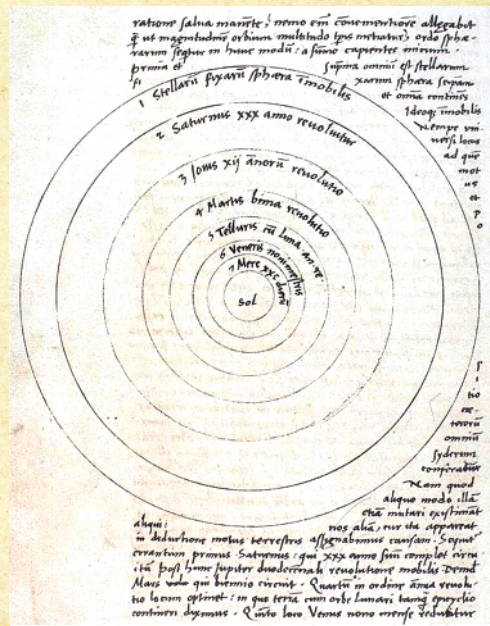 ratione salua manēte, nemo em̄ cōuenientiorē allegabit
q̄ ut magnitudinē orbium multitudo tp̄is metiatur, ordo sphæ-
rarum seqtur in hunc modū: a sūmo capientes initium.
prima et suprema omniū est stellarum
fi xarum sphæra seipām
et omīa continēs
Ideoq; ī̄mobilis
Nempe vni
uersi locus
ad quē
mot
us
et
po
1 Stellarū fixarū sphæra ī̄mobilis
2 Saturnus xxx anno reuoluitur
3 Iouis xij añorū reuolutio
4 Martis bima reuolutio
5 Telluris cū Luna an. re.
6 Veneris nonimestris
7 Merc xxc dierū
Sol
si
tio
cæ
terorū
omniū
syderum
conferatur
Nam quod
aliquo modo illā
etiā mutari existimāt
aliqui: nos aliā, cur ita appareat
in deductione motus terrestris assignabimus causam. Sequit̄
errantium primus Saturnus: qui xxx anno suū complet circu
itū post hunc Jupiter duodecennali reuolutione mobilis Deinde
Mars qui biennio circuit. Quartū in ordine annua reuolu
tio locum optinet: in quo terrā cum orbe Lunari tanq̄ epicyclio
contineri diximus. Quīto loco Venus nono mense reducitur